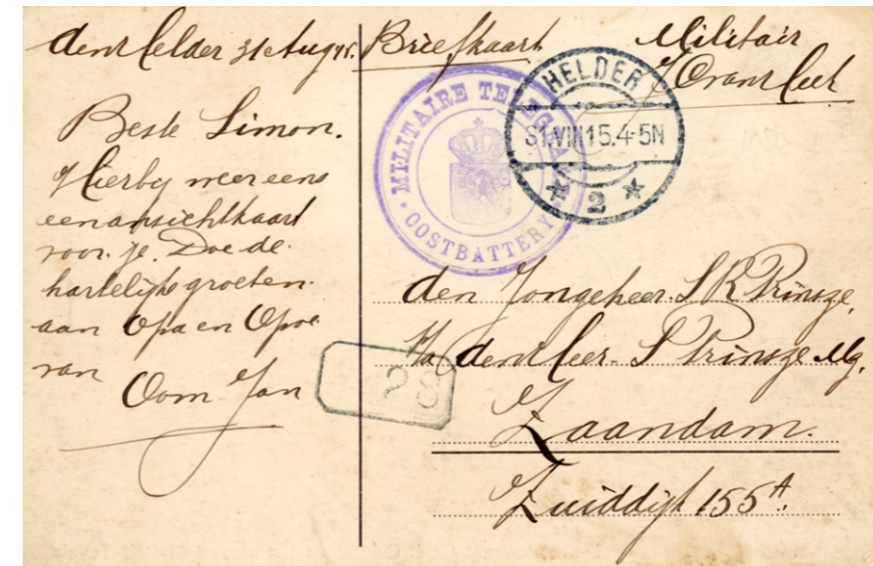 den Helder 31e Aug 15.
Beste Simon.
Hierbij weer eens
een ansichtkaart
voor je. Doe de
hartelijke groeten
aan Opa en Opoe
van
Oom Jan
Briefkaart
Militair
MILITAIRE
OOSTBATTERY
HELDER
31.VIII 15.4-5N
2
den Jongeheer. S K Prinsze,
p/a den Heer. S Prinsze Mg.
Zaandam.
Zuiddijk 155A.